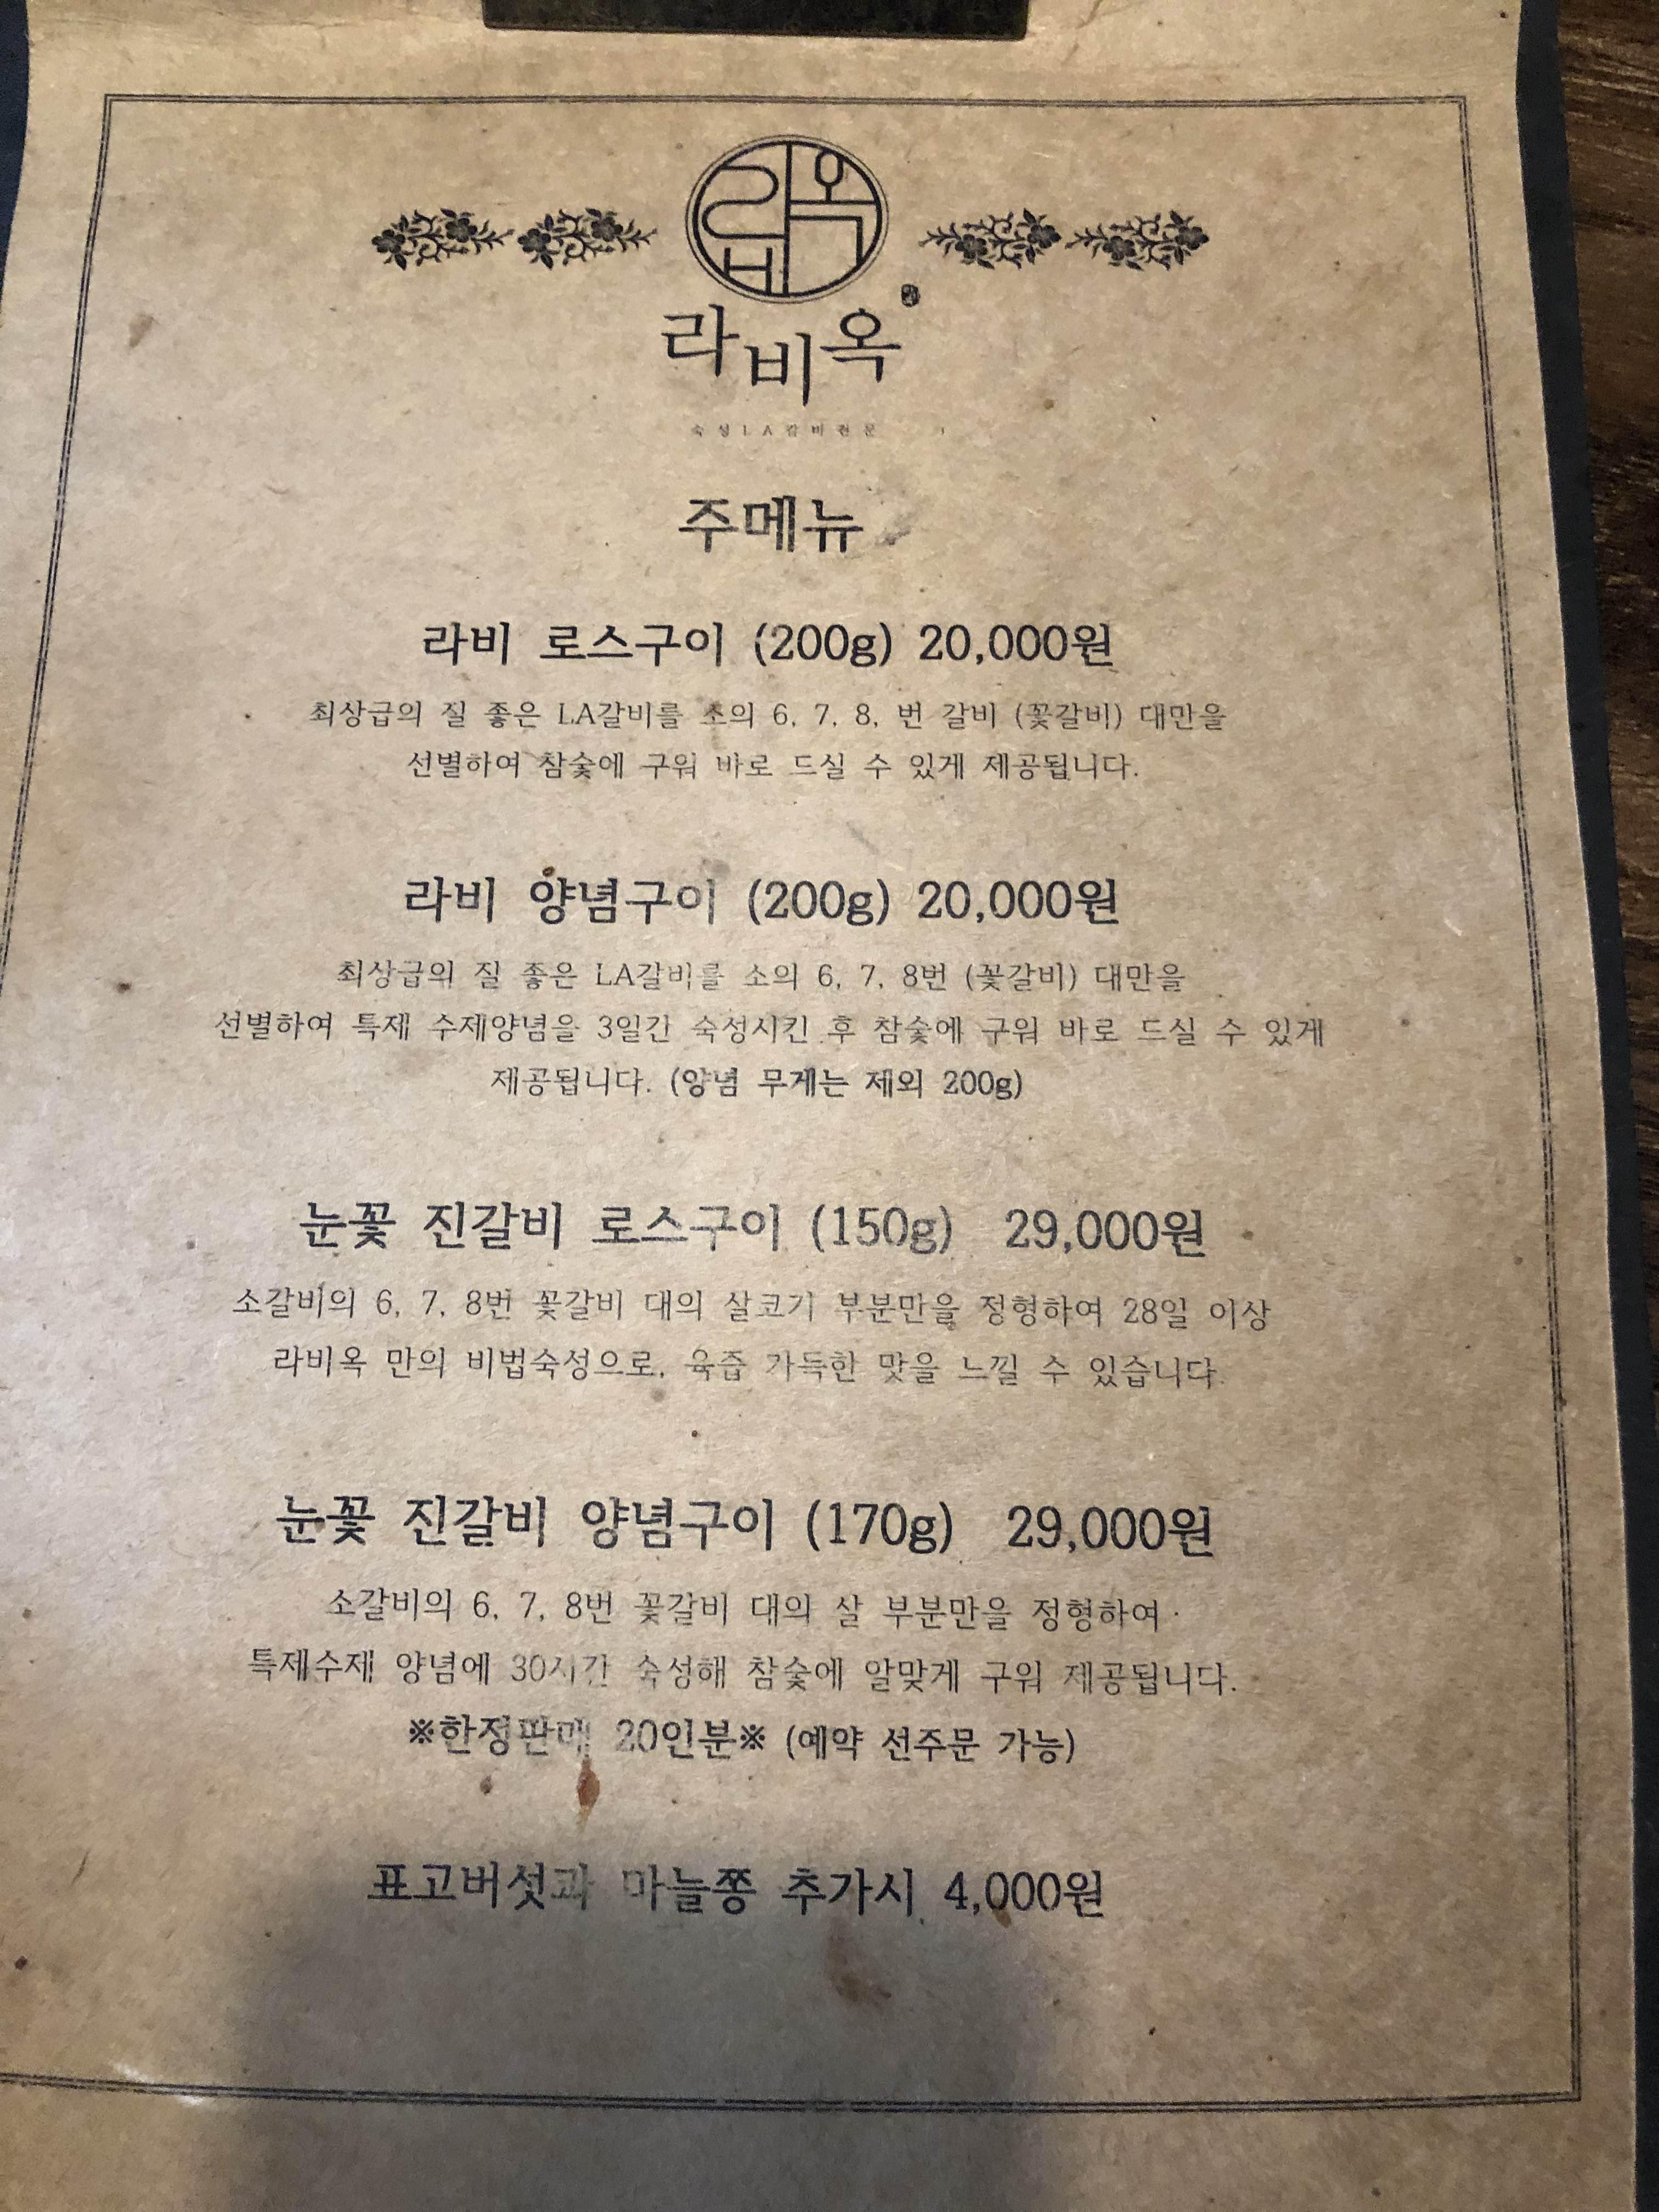 라비옥
라비옥
숙성LA갈비전문
주메뉴
라비 로스구이 (200g) 20,000원
최상급의 질 좋은 LA갈비를 소의 6, 7, 8, 번 갈비 (꽃갈비) 대만을
선별하여 참숯에 구워 바로 드실 수 있게 제공됩니다.
라비 양념구이 (200g) 20,000원
최상급의 질 좋은 LA갈비를 소의 6, 7, 8번 (꽃갈비) 대만을
선별하여 특제 수제양념을 3일간 숙성시킨 후 참숯에 구워 바로 드실 수 있게
제공됩니다. (양념 무게는 제외 200g)
눈꽃 진갈비 로스구이 (150g) 29,000원
소갈비의 6, 7, 8번 꽃갈비 대의 살코기 부분만을 정형하여 28일 이상
라비옥 만의 비법숙성으로, 육즙 가득한 맛을 느낄 수 있습니다.
눈꽃 진갈비 양념구이 (170g) 29,000원
소갈비의 6, 7, 8번 꽃갈비 대의 살 부분만을 정형하여
특제수제 양념에 30시간 숙성해 참숯에 알맞게 구워 제공됩니다.
※한정판매 20인분※ (예약 선주문 가능)
표고버섯과 마늘쫑 추가시 4,000원